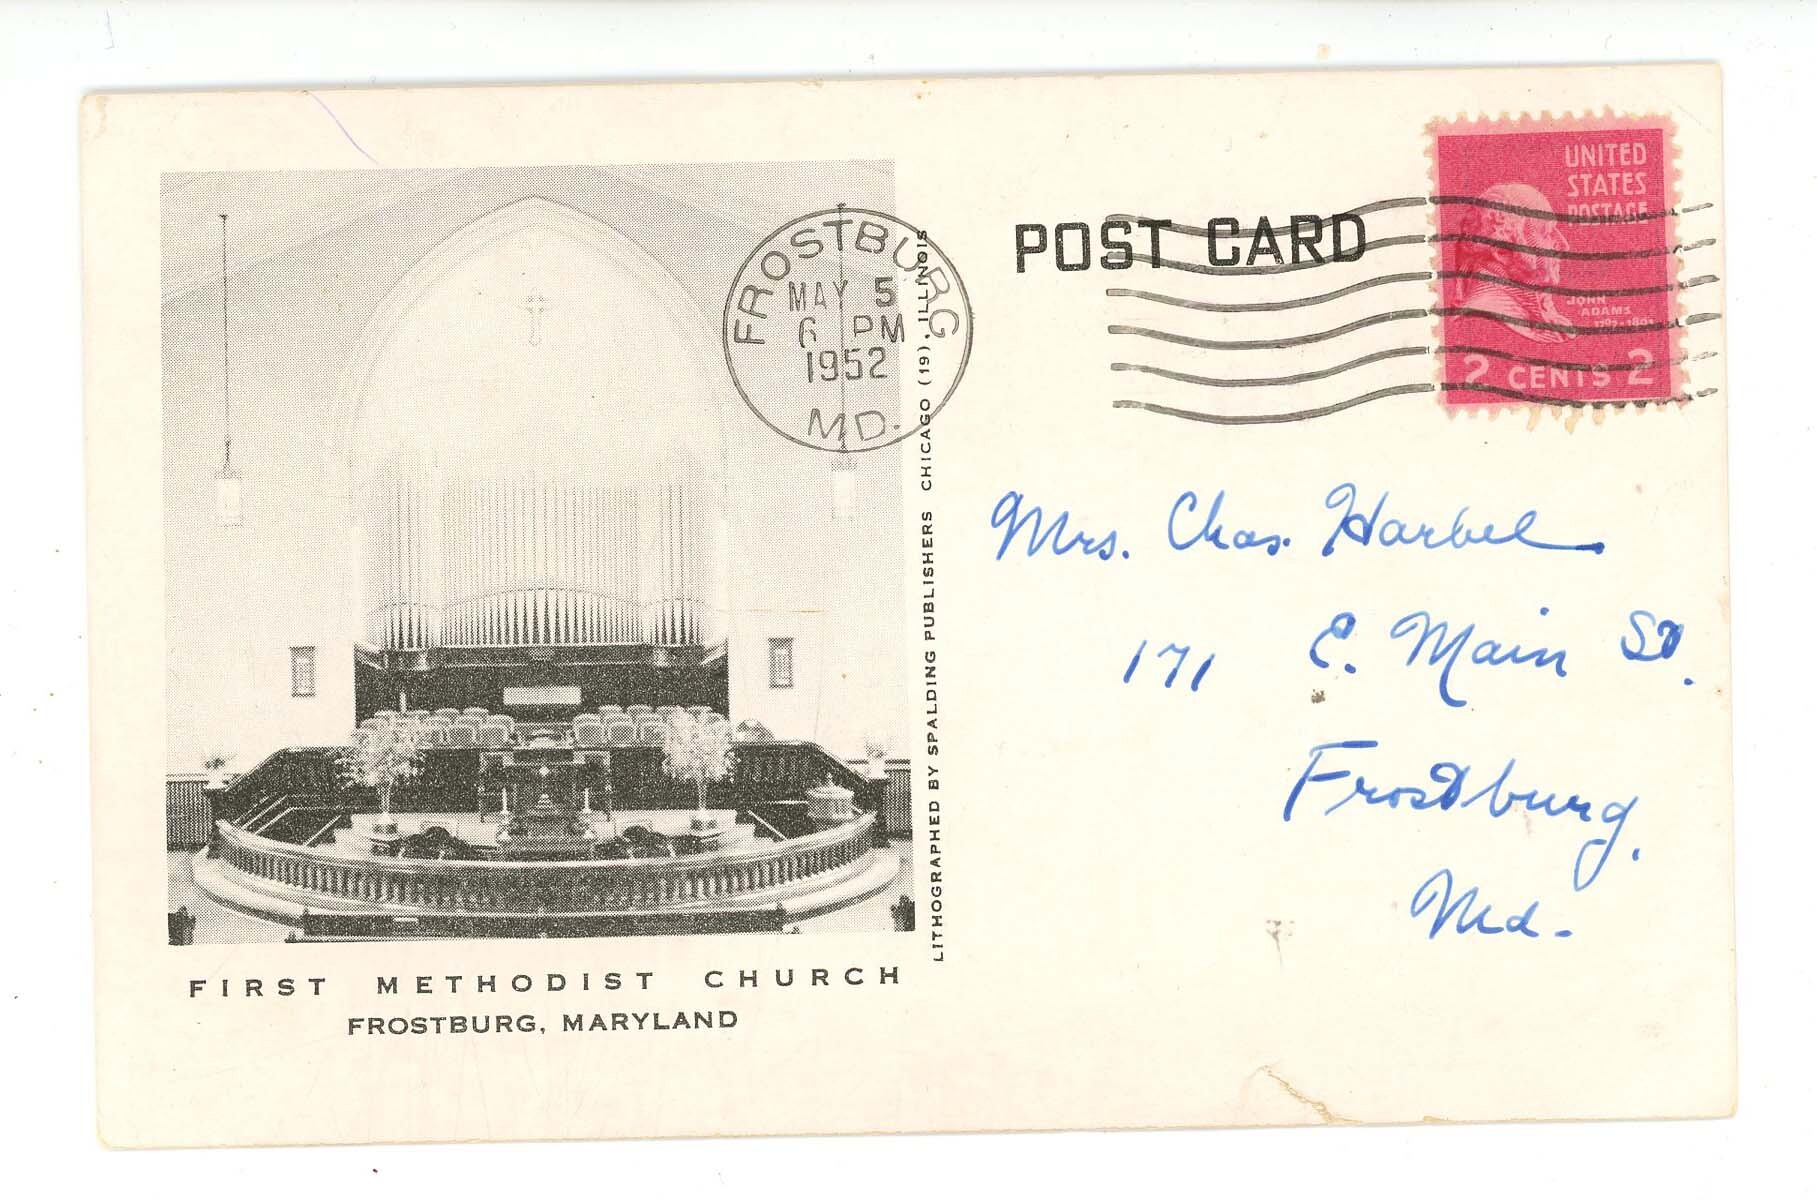 FIRST METHODIST CHURCH
FROSTBURG, MARYLAND
LITHOGRAPHED BY SPALDING PUBLISHERS CHICAGO (19), ILLINOIS
FROSTBURG
MAY 5
6 PM
1952
MD.
POST CARD
UNITED
STATES
POSTAGE
JOHN
ADAMS
2 CENTS 2
Mrs. Chas. Harbel
171 E. Main St.
Frostburg,
Md.